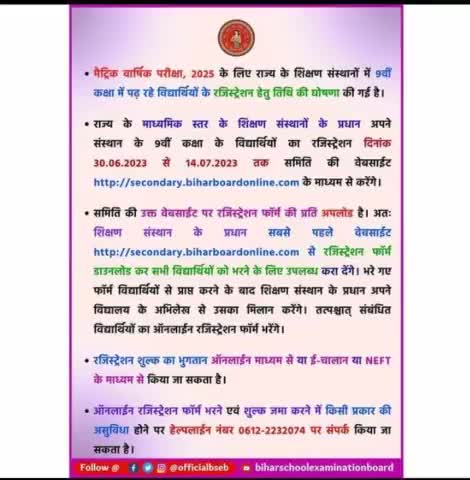 • मैट्रिक वार्षिक परीक्षा, 2025 के लिए राज्य के शिक्षण संस्थानों में 9वीं
कक्षा में पढ़ रहे विद्यार्थियों के रजिस्ट्रेशन हेतु तिथि की घोषणा की गई है।
• राज्य के माध्यमिक स्तर के शिक्षण संस्थानों के प्रधान अपने
संस्थान के 9वीं कक्षा के विद्यार्थियों का रजिस्ट्रेशन दिनांक
30.06.2023 से 14.07.2023 तक समिति की वेबसाईट
http://secondary.biharboardonline.com के माध्यम से करेंगे।
• समिति की उक्त वेबसाईट पर रजिस्ट्रेशन फॉर्म की प्रति अपलोड है। अतः
शिक्षण संस्थान के प्रधान सबसे पहले वेबसाईट
http://secondary.biharboardonline.com से रजिस्ट्रेशन फॉर्म
डाउनलोड कर सभी विद्यार्थियों को भरने के लिए उपलब्ध करा देंगे। भरे गए
फॉर्म विद्यार्थियों से प्राप्त करने के बाद शिक्षण संस्थान के प्रधान अपने
विद्यालय के अभिलेख से उसका मिलान करेंगे। तत्पश्चात् संबंधित
विद्यार्थियों का ऑनलाईन रजिस्ट्रेशन फॉर्म भरेंगे।
• रजिस्ट्रेशन शुल्क का भुगतान ऑनलाईन माध्यम से या ई-चालान या NEFT
के माध्यम से किया जा सकता है।
• ऑनलाईन रजिस्ट्रेशन फॉर्म भरने एवं शुल्क जमा करने में किसी प्रकार की
असुविधा होने पर हेल्पलाईन नंबर 0612-2232074 पर संपर्क किया जा
सकता है।
Follow @ @officialbseb biharschoolexaminationboard